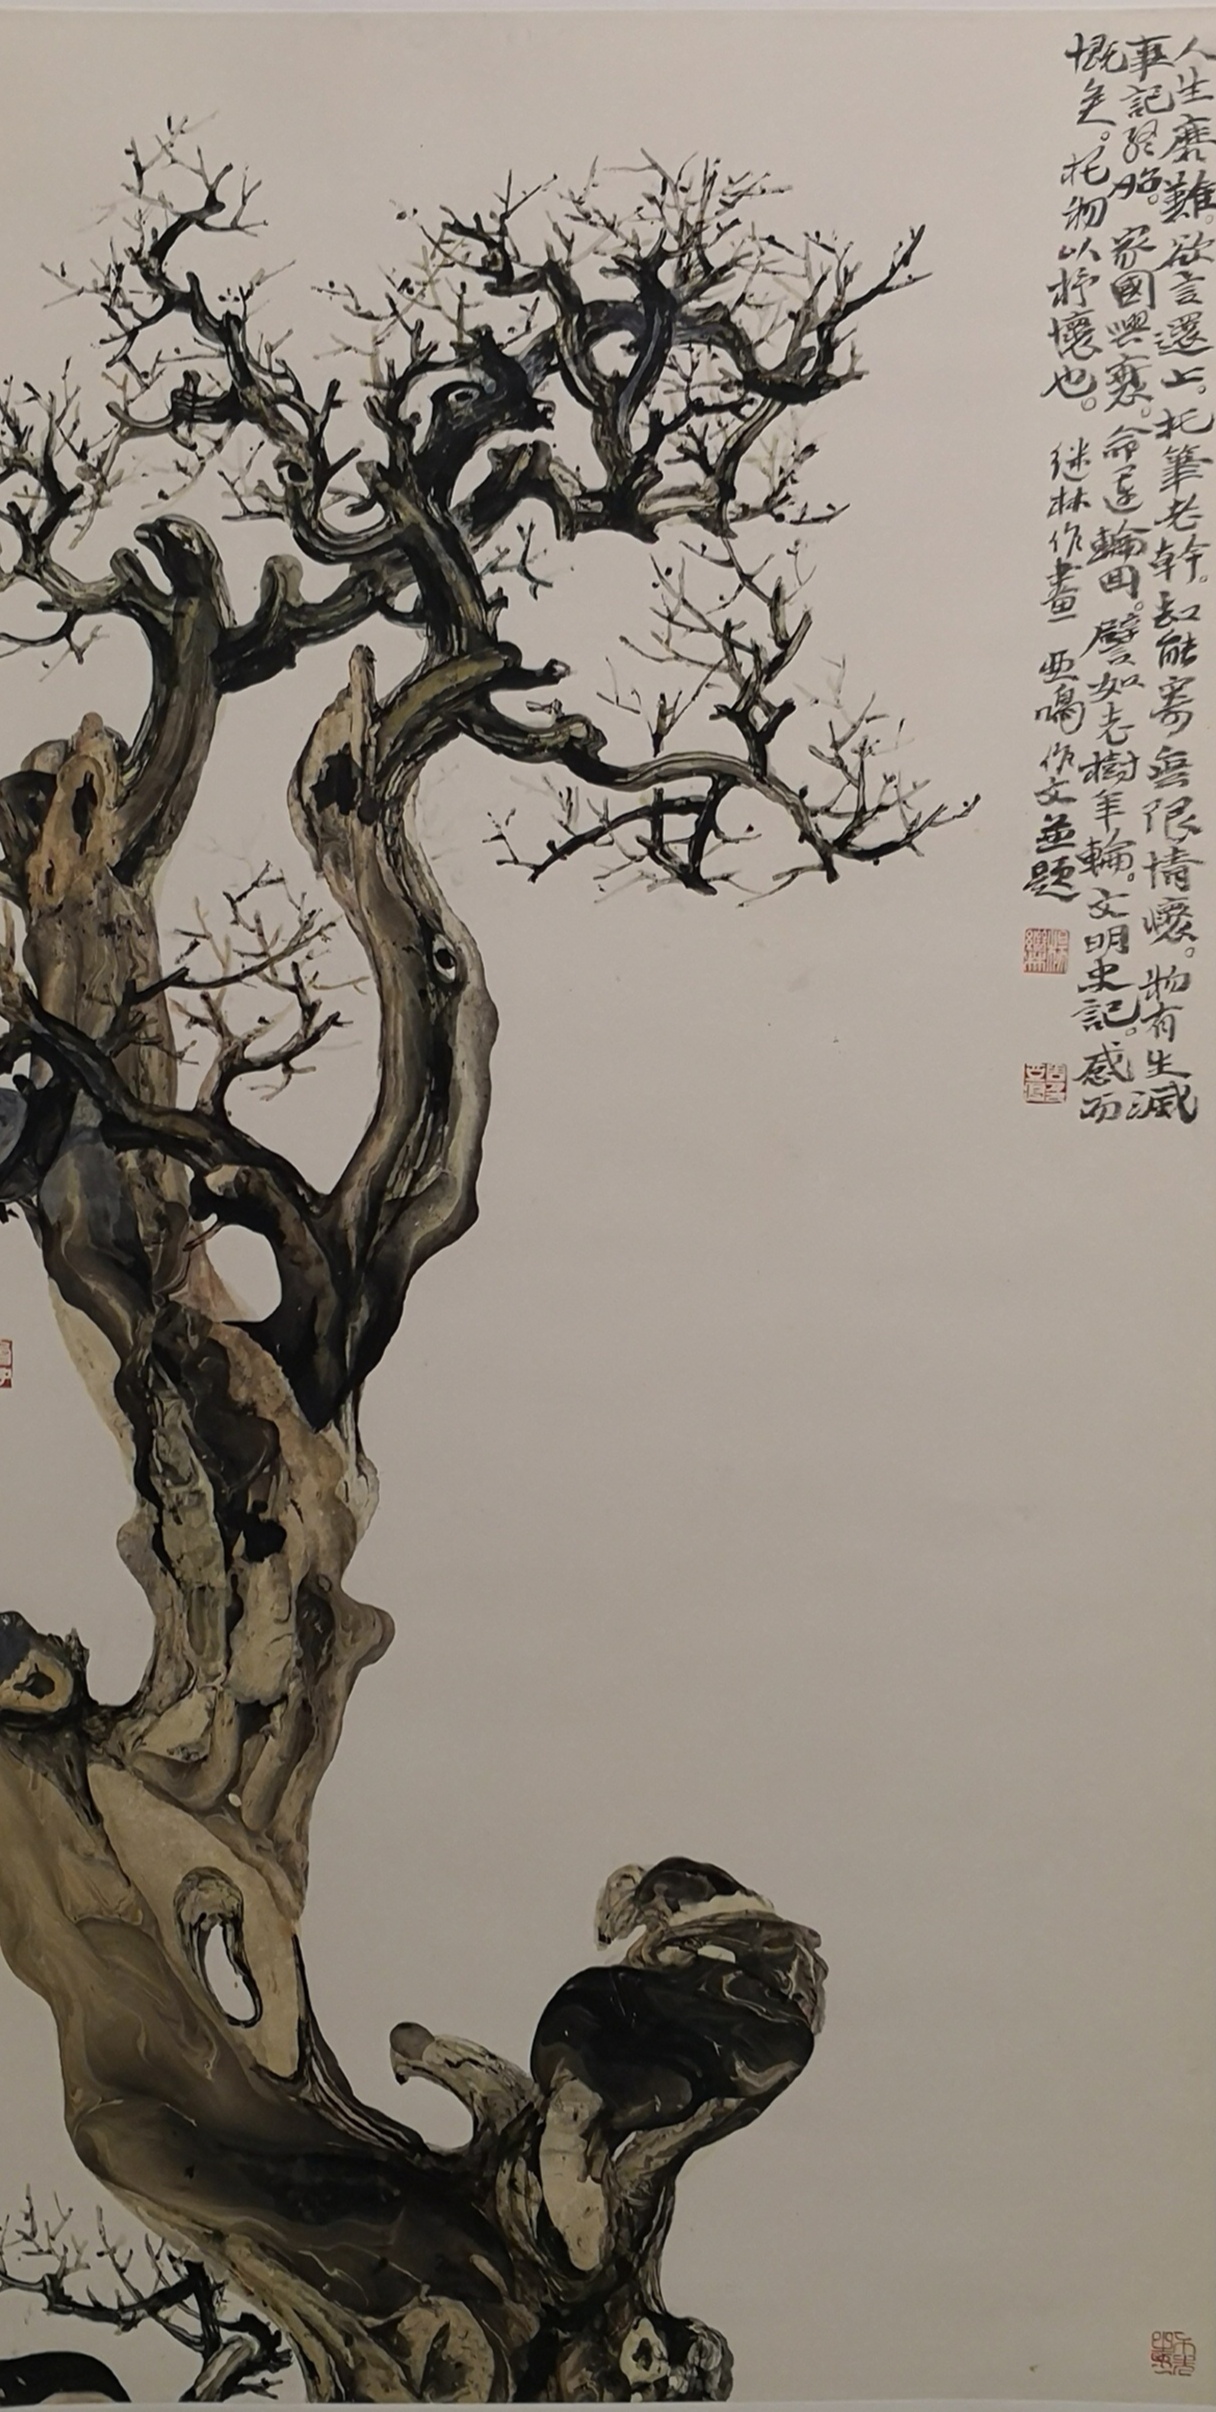 人生磨難。欲言還止。托筆老幹。却能寄無限情懷。物有生滅
事記經略。家國興衰。命運輪回。譬如老樹年輪。文明史記。感而
慨矣。托物以抒懷也。 继林作畫 亚鳴作文並题